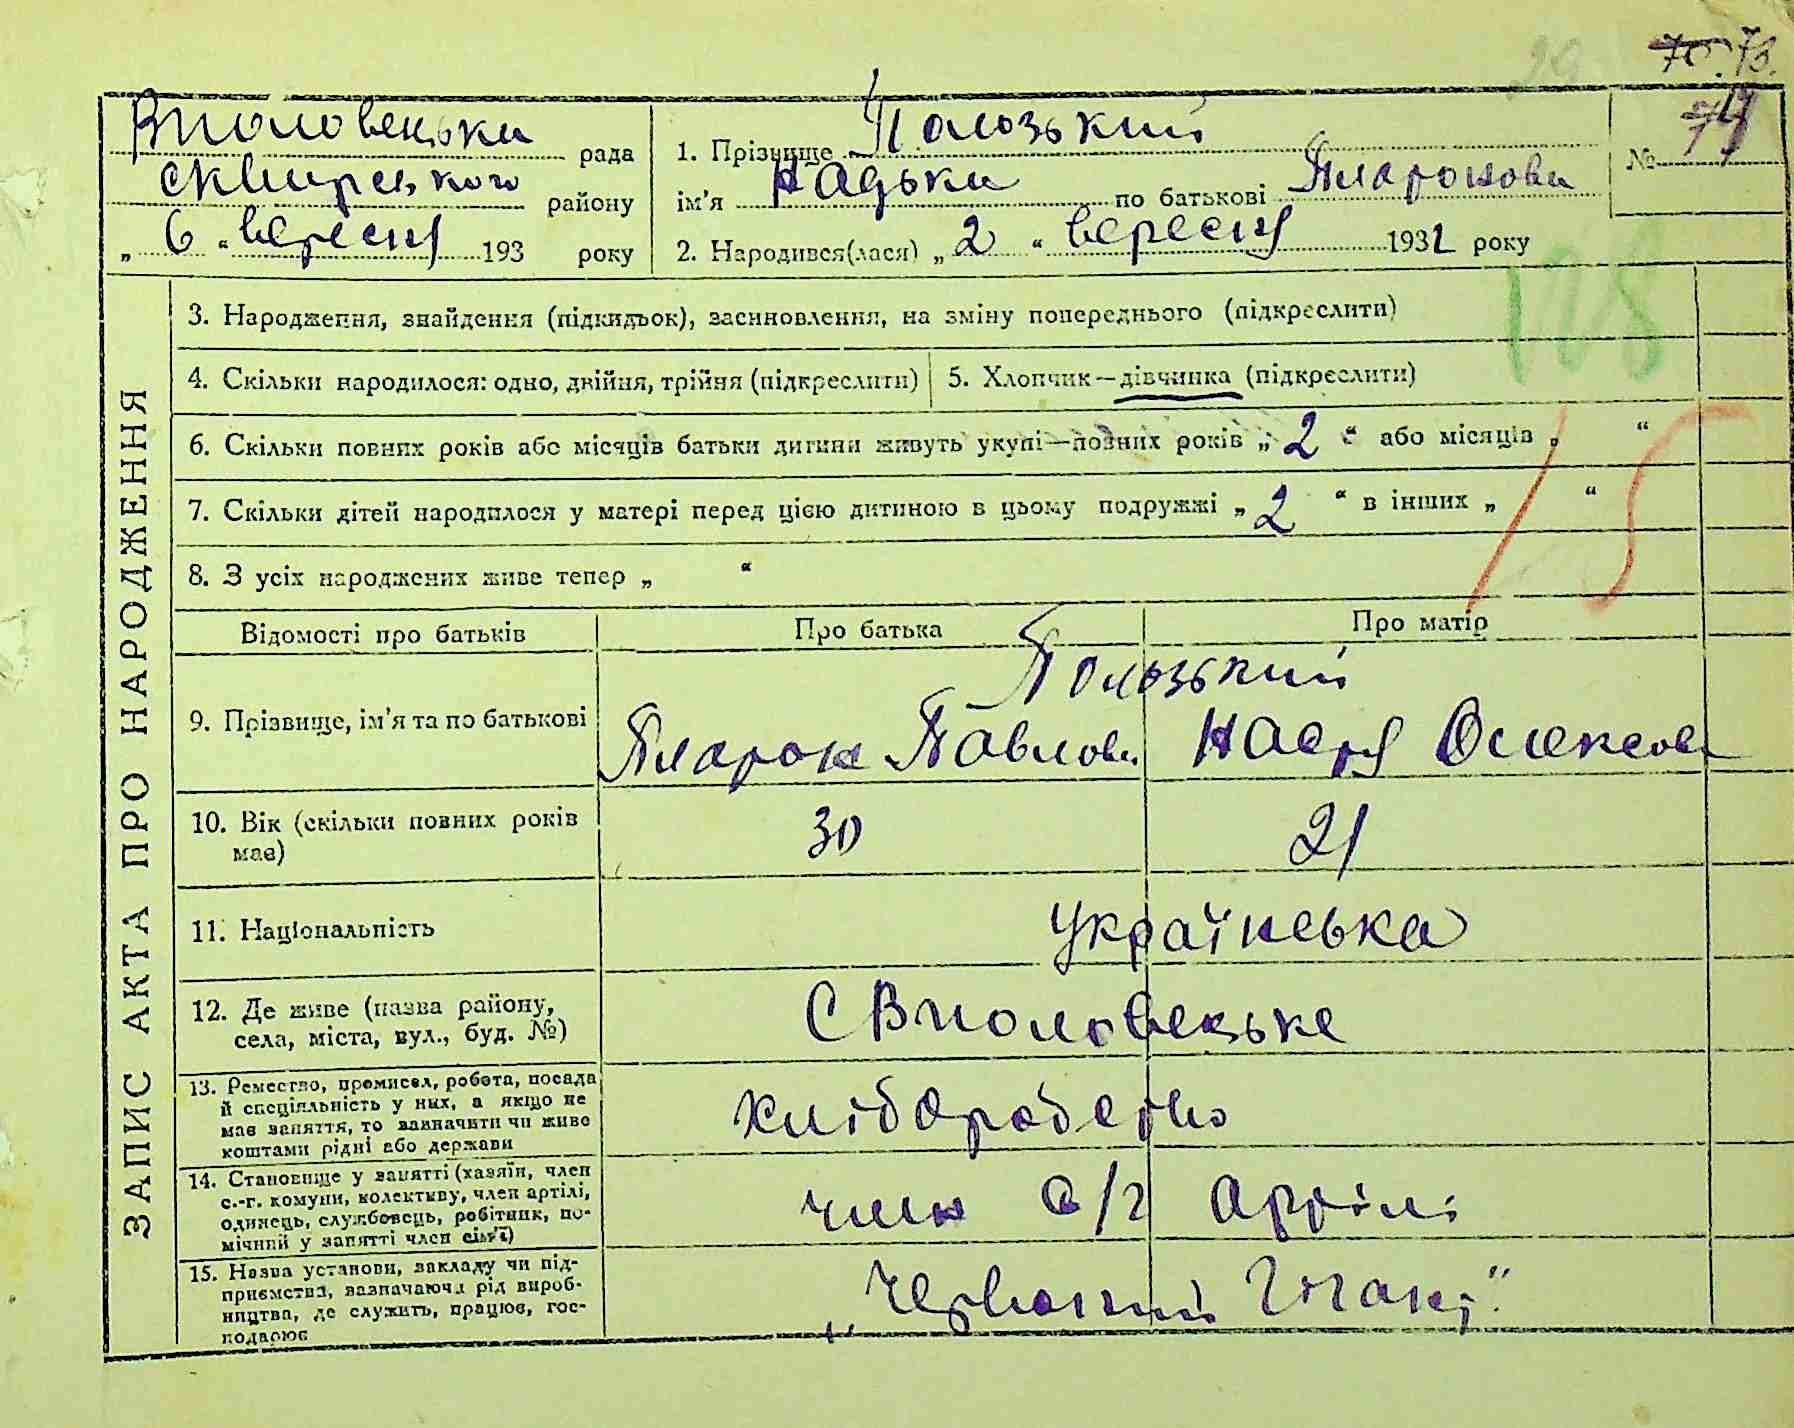 29 70. 73.
Вполовецька рада
Сквирського району
„ 6 “ вересня 193 року
1. Прізвище Пользький
ім'я Надька по батькові Иларонова
2. Народився(лася) „ 2 “ вересня 1932 року
№ 74
128
ЗАПИС АКТА ПРО НАРОДЖЕННЯ
3. Народження, знайдення (підкидьок), засиновлення, на зміну попереднього (підкреслити)
4. Скільки народилося: одно, двійня, трійня (підкреслити) 5. Хлопчик—дівчинка (підкреслити)
6. Скільки повних років або місяців батьки дитини живуть укупі—повних років „ 2 “ або місяців „ “
7. Скільки дітей народилося у матері перед цією дитиною в цьому подружжі „ 2 “ в інших „ “
8. З усіх народжених живе тепер „ “
15
Відомості про батьків Про батька Про матір
9. Прізвище, ім'я та по батькові
Пользький
Иларон Павлов. Настя Олексов
10. Вік (скільки повних років має) 30 21
11. Національність українська
12. Де живе (назва району, села, міста, вул., буд. №) С Вполовецьке
13. Ремество, промисел, робота, посада
й спеціяльність у них, а якщо не
має заняття, то зазначити чи живе
коштами рідні або держави
хліборобство
14. Становище у занятті (хазяїн, член
с.-г. комуни, колективу, член артілі,
одинець, службовець, робітник, по-
мічний у занятті член сім'ї)
член с/г артілі
15. Назва установи, закладу чи під-
приємства, зазначаючи рід вироб-
ництва, де служить, працює, гос-
подарює
„Червоний Гігант“